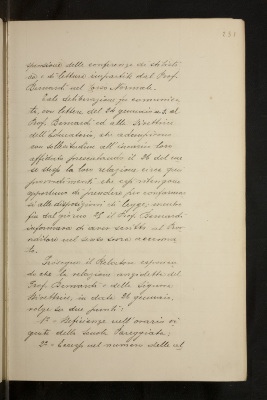 pensione delle conferenze di storia
e di lettere impartite dal Prof.
Bernardi nel Corso Normale.
Tale deliberazione fu comunica-
ta, con lettera del 24 gennaio al
Prof. Bernardi ed alla Direttrice
dell'Educatorio, che adempirono
con sollecitudine all'incarico loro
affidato presentando il 26 del me-
se stesso la loro relazione circa quei
provvedimenti che essi ritengono
opportuno di prendere per conformar-
si alle disposizioni di legge; mentre
fin dal giorno 25 il Prof. Bernardi
informava di aver scritto al Prov-
veditore nel senso sopra accenna-
to.
Prosegue il Relatore esponen-
do che la relazione anzidetta del
Prof. Bernardi e della Signora
Direttrice, in data 26 gennaio,
volge su due punti:
1° - Deficienze nell'orario di
questa Scuola Pareggiata;
2° - Eccesso nel numero delle al